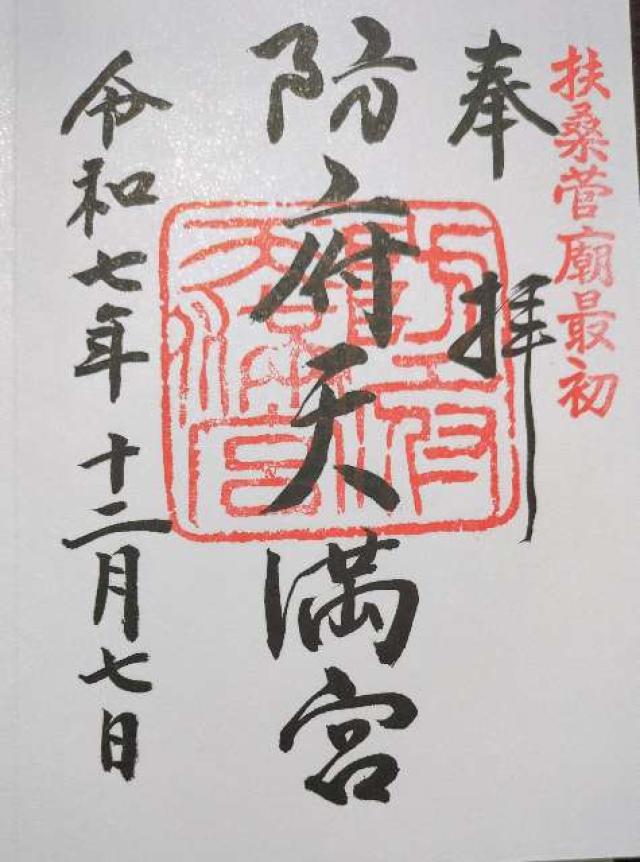 扶桑菅廟最初
奉拝
防府天満宮
令和七年十二月七日
防府天満宮